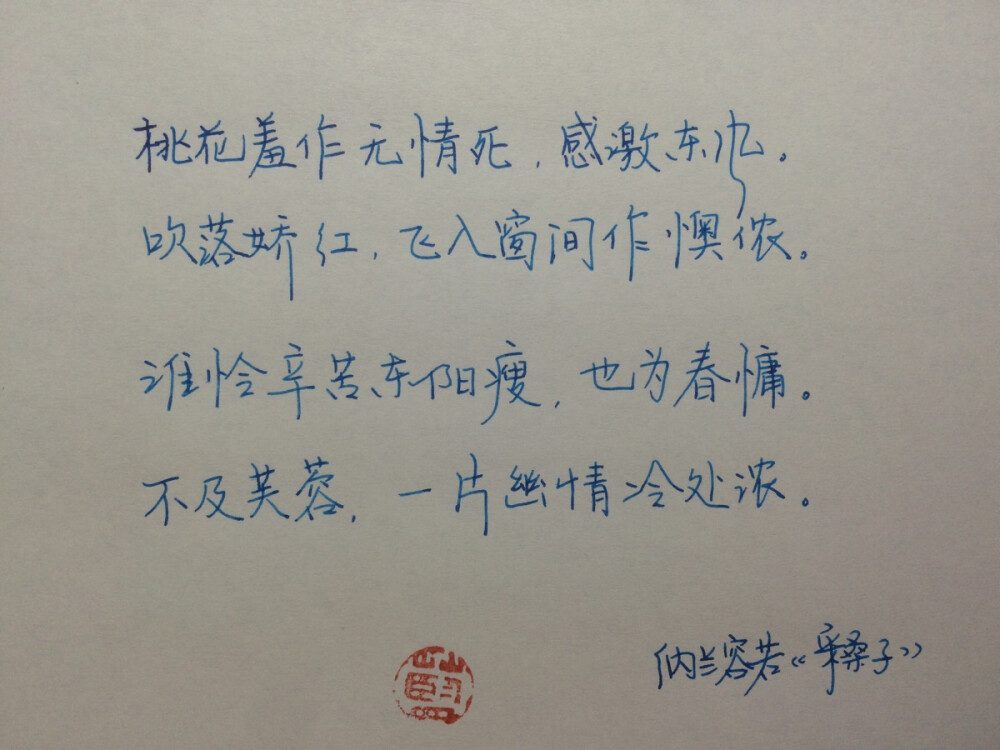 桃花羞作无情死,感激东风。
吹落娇红,飞入窗间作懊侬。
谁怜辛苦东阳瘦,也为春慵。
不及芙蓉,一片幽情冷处浓。
纳兰容若《采桑子》